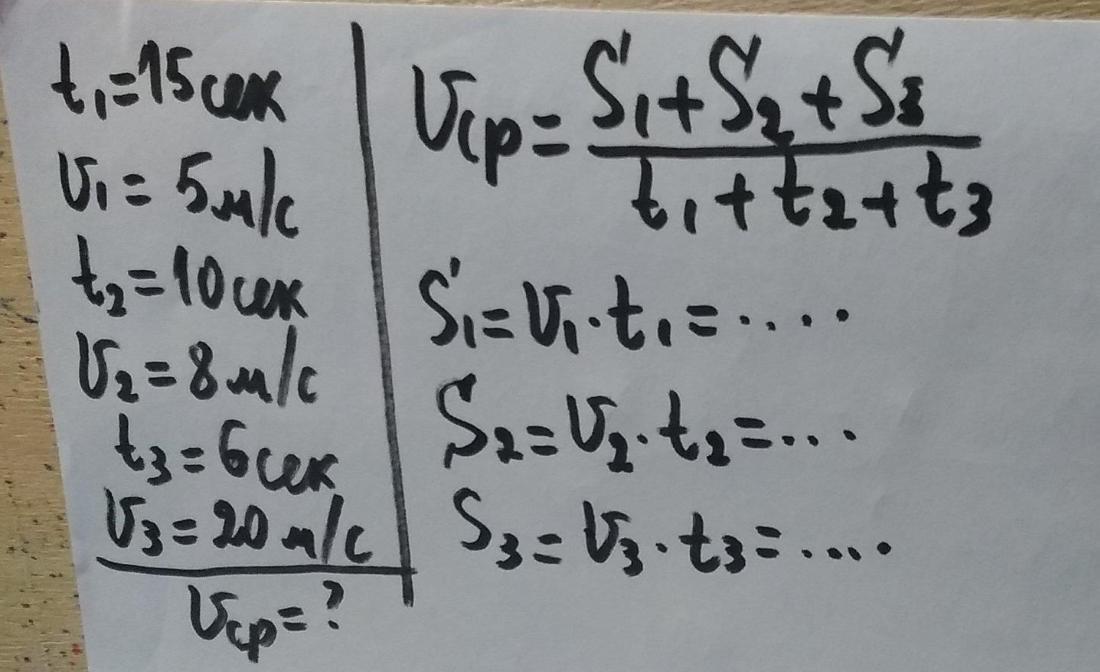 t₁=15сек
υ₁=5м/с
t₂=10сек
υ₂=8м/с
t₃=6сек
υ₃=20м/с
υср=?
υср=(S₁+S₂+S₃)/(t₁+t₂+t₃)
S₁=υ₁·t₁=....
S₂=υ₂·t₂=...
S₃=υ₃·t₃=....